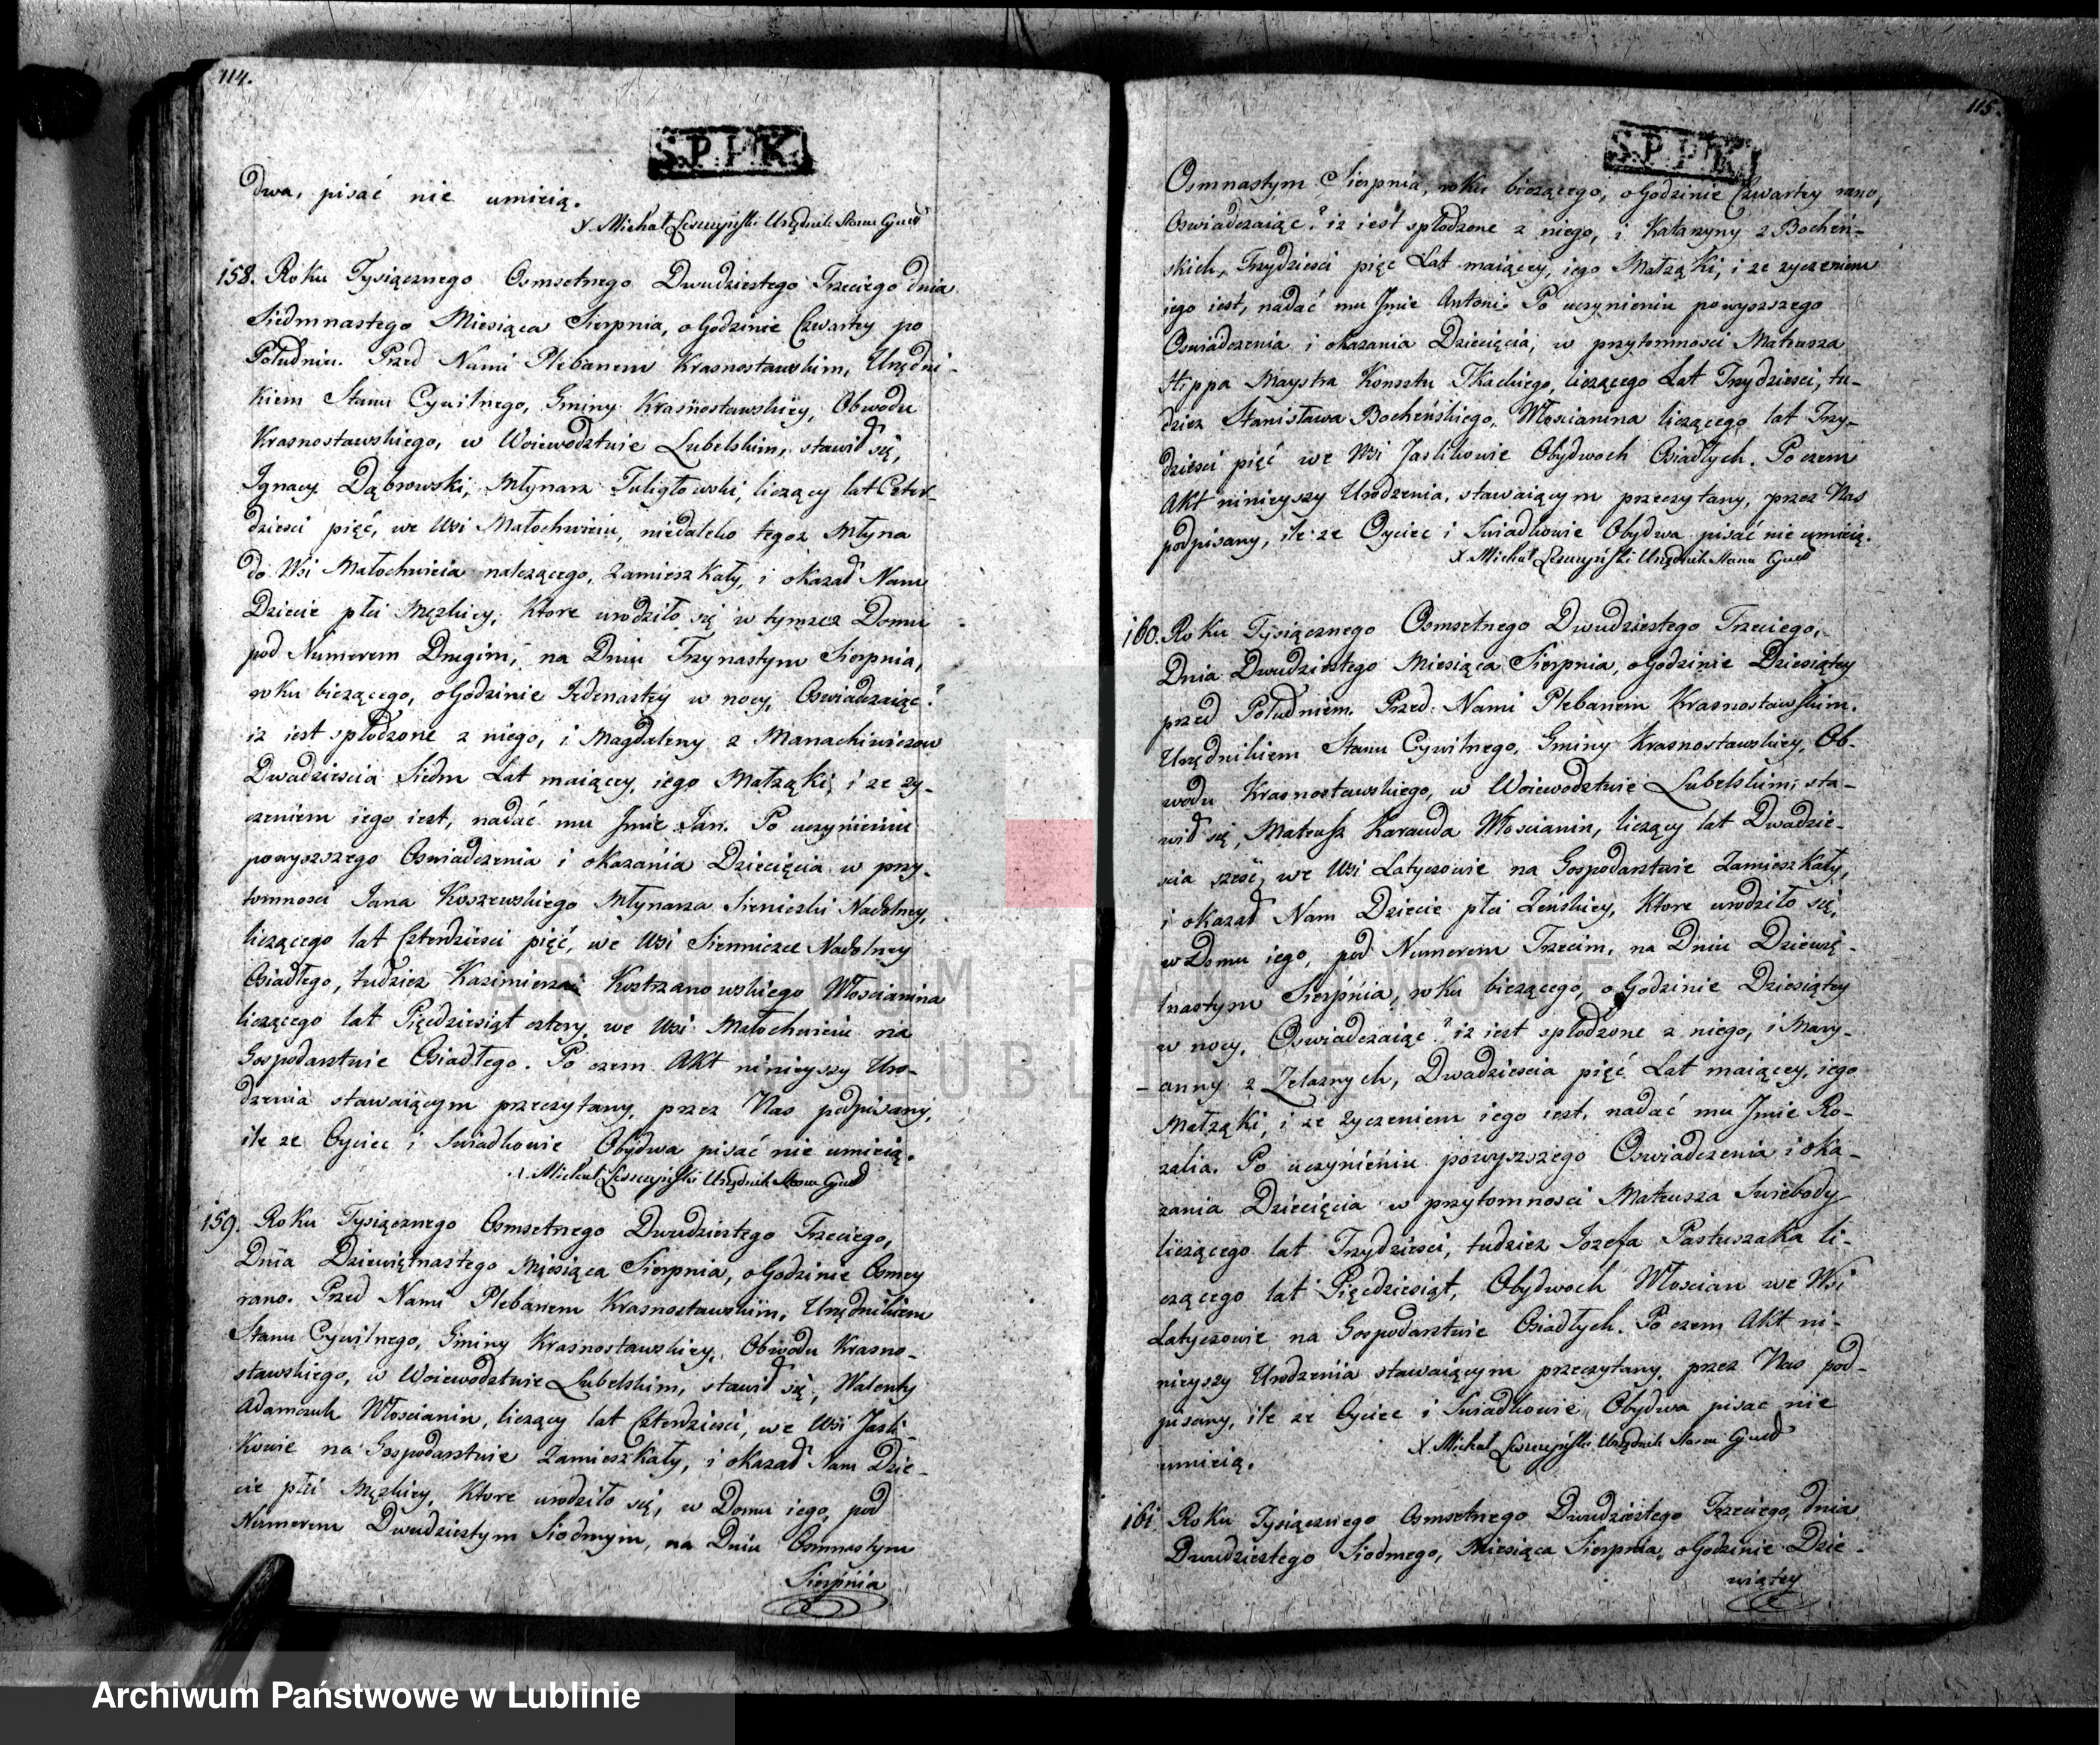 114.
S.P.P.K.
dwa, pisać nie umieią.
X. Michał Leszczyński Urzędnik Stanu Cywil
158. Roku Tysiącznego Osmsetnego Dwudziestego Trzeciego dnia
Siedmnastego Miesiąca Sierpnia, o Godzinie Czwartey po
Południu. Przed Nami Plebanem Krasnostawskim, Urzędni-
kiem Stanu Cywilnego, Gminy Krasnostawskiey, Obwodu
Krasnostawskiego, w Woiewodztwie Lubelskim, stawił się,
Ignacy Dąbrowski, Młynarz Tuligłowski, liczący lat Czter-
dziesci pięć, we Wsi Małochwieiu, niedaleko tegoz Młyna
do Wsi Małochwieia nalezącego, Zamieszkały, i okazał Nam
Dziecie płci Męzkiey, Ktore urodziło się w tymzez Domu
pod Numerem Drugim, na Dniu Trzynastym Sierpnia,
roku biezącego, o Godzinie Jedenastey w nocy, Oswiadczaiąc?
iz iest spłodzone z niego, i Magdaleny z Manachiwiczow
Dwadziescia Siedm Lat maiącey, iego Małząki, i ze zy-
czeniem iego iest, nadać mu Jmie Jan. Po uczynieniu
powyszszego Oswiadczenia i okazania Dziecięcia w przy-
tomnosci Jana Koszewskiego Młynarza Sieniczki Nadolney,
liczącego lat Czterdziesci pięć, we Wsi Siennicze Nadolney
Osiadłego, tudziez Kazimierza Kostrzanowskiego Włoscianina
liczącego lat Pięcdziesiąt cztery, we Wsi Małochwieiu na
Gospodarstwie Osiadłego. Po czem Akt ninieyszy Uro-
dzenia stawaiącym przeczytany, przez Nas podpisany,
ile ze Oyciec i Swiadkowie Obydwa pisać nie umieią.
X. Michał Leszczyński Urzędnik Stanu Cywil
159. Roku Tysiącznego Osmsetnego Dwudziestego Trzeciego,
Dnia Dziewiętnastego Miesiąca Sierpnia, o Godzinie Osmey
rano. Przed Nami Plebanem Krasnostawskim, Urzędnikiem
Stanu Cywilnego, Gminy Krasnostawskiey, Obwodu Krasno-
stawskiego, w Woiewodztwie Lubelskim, stawił się, Walenty
Adamczuk Włoscianin, liczący lat Czterdziesci, we Wsi Jasli-
kowie na Gospodarstwie Zamieszkały, i okazał Nam Dzie-
cie płci Męzkiey, Ktore urodziło się, w Domu iego, pod
Numerem Dwudziestym Siodmym, na Dniu Osmnastym
Sierpnia
115.
S.P.P.K.
Osmnastym Sierpnia, roku biezącego, o Godzinie Czwartey rano,
Oswiadczaiąc? iz iest spłodzone z niego, i Katarzyny z Bocheń-
skich, Trzydziesci pięc Lat maiącey, iego Małząki, i ze zyczeniem
iego iest, nadać mu Jmie Antoni. Po uczynieniu powyszszego
Oswiadczenia i okazania Dziecięcia, w przytomnosci Mateusza
Hippa Maystra Konsztu Tkackiego, liczącego Lat Trzydziesci, tu-
dziez Stanisława Bocheńskiego, Włoscianina liczącego lat Trzy-
dziesci pięć we Wsi Jaslikowie Obydwoch Osiadłych. Po czem
Akt ninieyszy Urodzenia, stawaiącym przeczytany, przez Nas
podpisany, ile ze Oyciec i Swiadkowie Obydwa pisać nie umieią.
X. Michał Leszczyński Urzędnik Stanu Cywil
160. Roku Tysiącznego Osmsetnego Dwudziestego Trzeciego,
Dnia Dwudziestego Miesiąca Sierpnia, o Godzinie Dziesiątey
przed Południem. Przed Nami Plebanem Krasnostawskim.
Urzędnikiem Stanu Cywilnego, Gminy Krasnostawskiey, Ob-
wodu Krasnostawskiego, w Woiewodztwie Lubelskim, sta-
wił się, Mateusz Karauda Włoscianin, liczący lat Dwadzie-
scia szesć, we Wsi Latyczowie na Gospodarstwie Zamieszkały,
i okazał Nam Dziecie płci Zeńskiey, Ktore urodziło się,
w Domu iego, pod Numerem Trzecim, na Dniu Dziewię-
tnastym Sierpnia, roku biezącego, o Godzinie Dziesiątey
w nocy, Oswiadczaiąc? iz iest spłodzone z niego, i Mary-
anny z Zelaznych, Dwadziescia pięć Lat maiącey, iego
Małząki, i ze zyczeniem iego iest, nadać mu Jmie Ro-
zalia. Po uczynieniu powyszszego Oswiadczenia i oka-
zania Dziecięcia w przytomnosci Mateusza Swiebody
liczącego lat Trzydziesci, tudziez Jozefa Pastuszaka li-
czącego lat Pięcdziesiąt, Obydwoch Włoscian we Wsi
Latyczowie na Gospodarstwie Osiadłych. Po czem Akt ni-
nieyszy Urodzenia stawaiącym przeczytany, przez Nas pod-
pisany, ile ze Oyciec i Swiadkowie Obydwa pisac nie
umieią.
X. Michał Leszczyński Urzędnik Stanu Cywil
161 Roku Tysiącznego Osmsetnego Dwudziestego Trzeciego, dnia
Dwudziestego Siodmego, Miesiąca Sierpnia, o Godzinie Dzie-
wiątey
ARCHIWUM PAŃSTWOWE
W LUBLINIE
Archiwum Państwowe w Lublinie